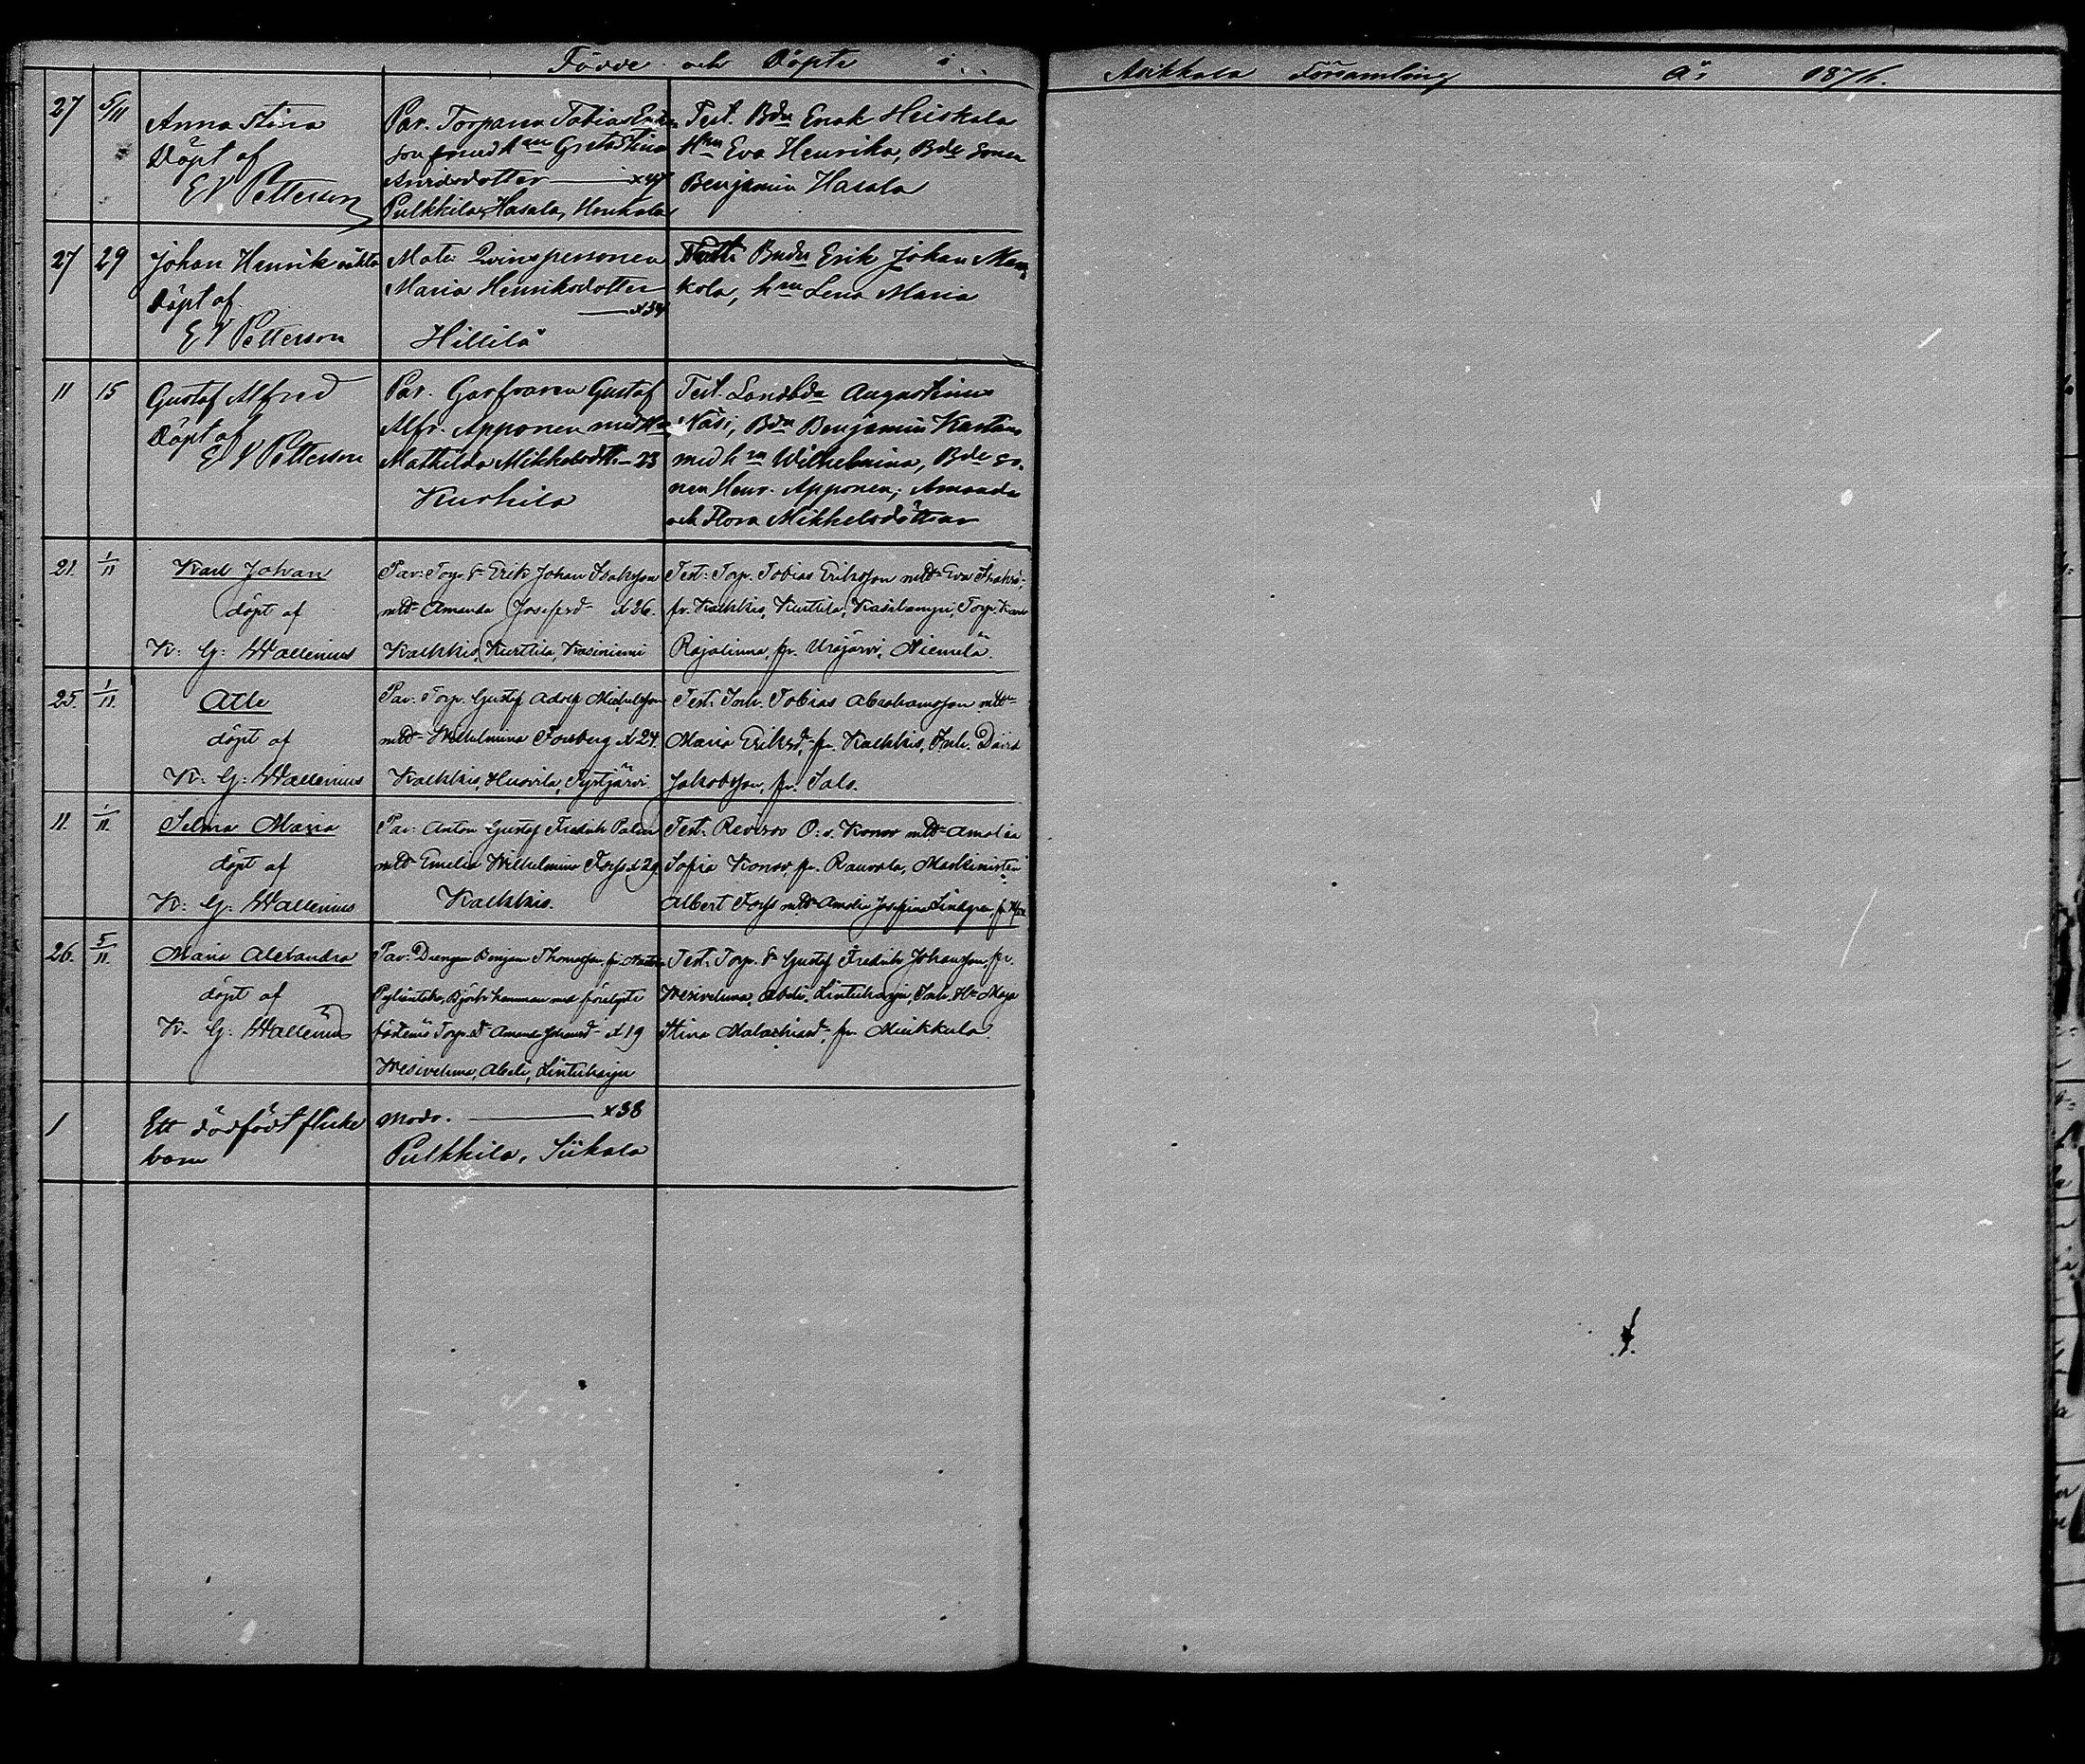 Födde och Döpte i Asikkala Församling År 1876.
27 5/11 Anna Stina
Döpt af
E V Petterson
Par. Torparen Tobias Eriks
son med hu Greta Stina
x47
Pulkkila, Hasala,
Test. Bdn Enok Heiskala
Hn Eva Henrika, Bde sonen
Benjamin Hasala
27 29 Johan Henrik oäkta
Döpt af
E V Petterson
Mater Qvinspersonen
Maria Henriksdotter
x34
Hillilä
Bndn Erik Johan Man
kola, hn Lena Maria
11 15 Gustaf Alfred
Döpt af
E V Petterson
Par. Garfvaren Gustaf
Alfr. Apponen med Hn
Mathilda Mikkelsdtr - 23
Kurhila
Test. Landbdn Augustinus
Näsi, Bdn Benjamin
med hn Wilhelmina, Bde so
nen Henr. Apponen, Amanda
och Flora Mikkelsdöttrar
21. 1/11 Karl Johan
döpt af
K: G: Wallenius
Par: Torp. Erik Johan Isaksson
mtd Amanda Josefsd. x 26.
Kalkkis, Kurttila, Kasiniemi
Test: Torp. Tobias Eriksson mtd Eva
fr. Kalkkis, Kurttila, Torp. Karl
Rajalinna, fr. Urajärvi, Niemelä.
25. 1/11. Atle
döpt af
K: G: Wallenius
Par: Torp. Gustaf Adolf Michelsson
mtd Wilhelmina Forsberg x 24.
Kalkkis, Huovila, Syrjärvi.
Test: Inh. Tobias Abrahamsson mtd
Maria Eriksd. fr. Kalkkis, Inh. David
Jakobsson, fr. Salo.
11. 1/11. Selma Maria
döpt af
K: G: Wallenius
Par: Anton Gustaf Fredrik Palin
mtd Emelia Wilhelmina Forss x 29.
Kalkkis.
Test: Revisor O: v. Konow mtd Amalia
Sofia Konow, fr. Rauvola, Maskinisten
Albert Forss mtd Amalia Josefina Lindgren,
26. 5/11. Maria Alexandra
döpt af
K: G: Wallenius
Par: Drengen Benjam Thomasson, fr.
med förelofte
Torp. Amanda x 19
Wesivehma, Abeli, Lintuharju
Test: Torp. Gustaf Fredrik Johansson, fr.
Wesivehma, Abeli, Lintuharju, Inh. Hu Maja
Stina Malachiasd. fr. Muikkula.
1 Ett dödfödt flicke
barn
Modr. x38
Pulkkila, Siikala